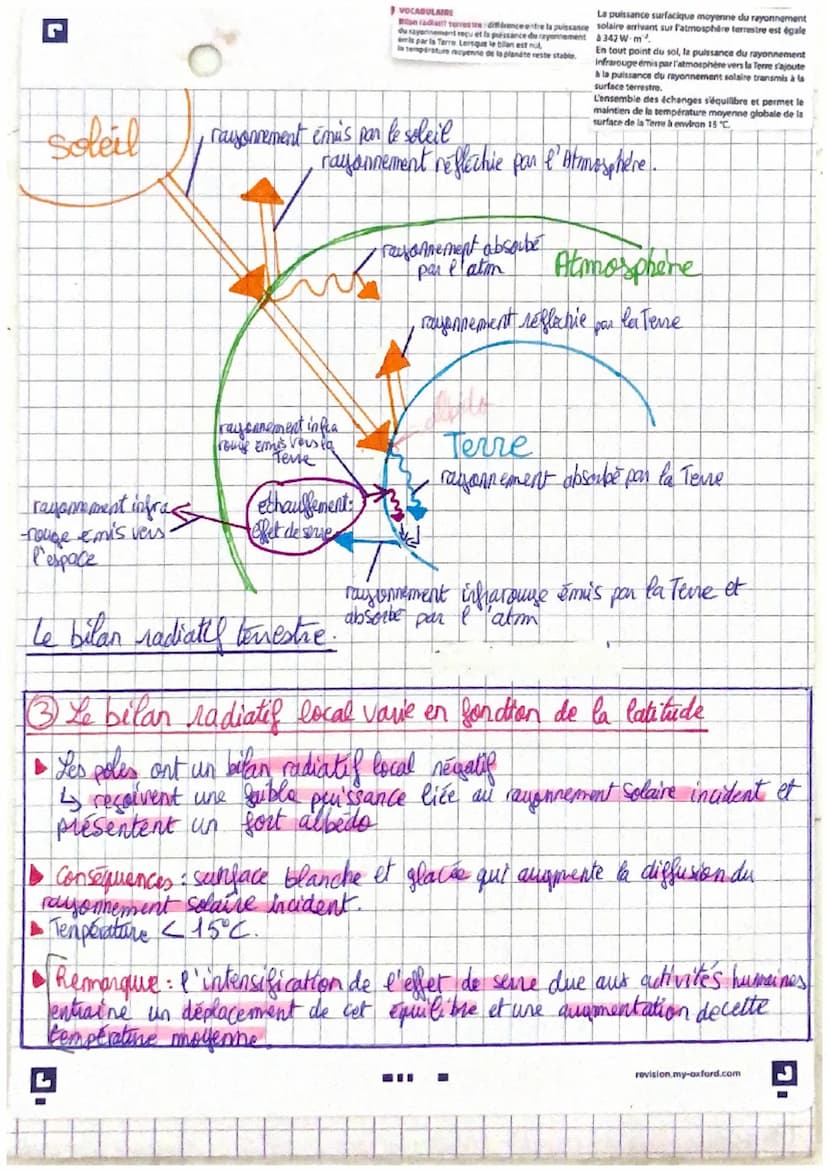 VOCABULAIRE
Bilan radiatif terrestre : différence entre la puissance
du rayonnement reçu et la puissance du rayonnement
émis par la Terre. Lorsque le bilan est nul,
la température moyenne de la planète reste stable.
La puissance surfacique moyenne du rayonnement
solaire arrivant sur l'atmosphère terrestre est égale
à 342 W·m⁻².
En tout point du sol, la puissance du rayonnement
infrarouge émis par l'atmosphère vers la Terre s'ajoute
à la puissance du rayonnement solaire transmis à la
surface terrestre.
L'ensemble des échanges s'équilibre et permet le
maintien de la température moyenne globale de la
surface de la Terre à environ 15 °C.
Soleil
rayonnement émis par le soleil
rayonnement réfléchie par l'Atmosphère.
rayonnement absorbé
par l'atm
Atmosphère
rayonnement réfléchie par la Terre
albédo
rayonnement infra
rouge émis vers la
Terre
Terre
rayonnement absorbé par la Terre
échauffement:
effet de serre
rayonnement infra
-rouge émis vers
l'espace
rayonnement infrarouge émis par la Terre et
absorbé par l'atm
Le bilan radiatif terrestre.
③ Le bilan radiatif local varie en fonction de la latitude
▸ Les poles ont un bilan radiatif local négatif
↳ reçoivent une faible puissance liée au rayonnement solaire incident et
présentent un fort albédo
▸ Conséquences : surface blanche et glacée qui augmente la diffusion du
rayonnement solaire incident.
▸ Température < 15°C.
▸ Remarque : l'intensification de l'effet de serre due aux activités humaines
entraîne un déplacement de cet équilibre et une augmentation de cette
température moyenne.
revision.my-oxford.com